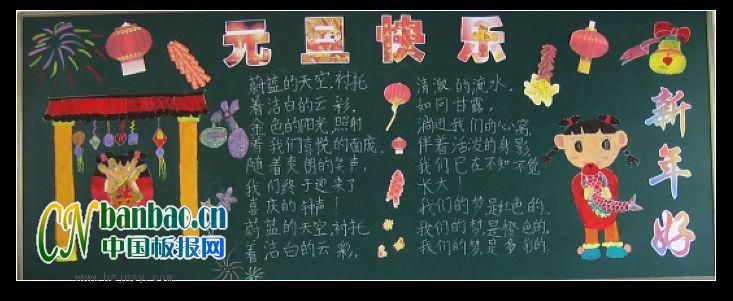 元旦快乐
蔚蓝的天空,衬托
着洁白的云彩,
金色的阳光,照射
着我们喜悦的面庞,
随着爽朗的笑声,
我们终于迎来了
喜庆的钟声!
蔚蓝的天空,衬托
着洁白的云彩,
清澈的流水,
如同甘露,
淌过我们的心窝,
伴着活泼的身影,
我们已在不知不觉
长大!
我们的梦是红色的,
我们的梦是橙色的,
我们的梦是多彩的.
新年好
CN banbao.cn
中国板报网
www.hzjnsy.com